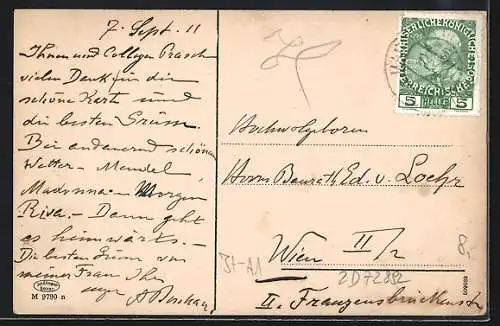 7. Sept. 11
Ihnen und Collegen Prasch
vielen Dank für die
schöne Karte und
die besten Grüsse.
Bei andauernd schönem
Wetter – Mendel
Madonna – Morgen
Riva. – Dann geht
es heimwärts. –
Die besten Grüsse von
meiner Frau Ihr
M 9790 n
KAISERLICHE KÖNIGLICHE
ÖSTERREICHISCHE
5 HELLER 5
Hochwolgeboren
Herrn Baurath Ed. v. Loehr
Wien II/2
II. Franzensbrückenstr
St-A1
2D7282
8.